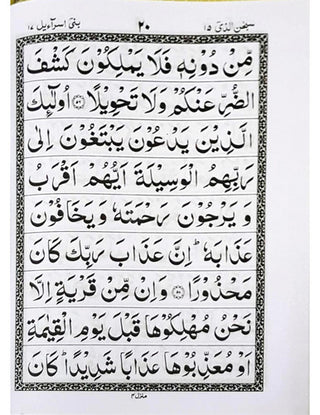 سبحن الذی ١٥ ٢٠ بنی اسرآءیل ١٧
مِّنۡ دُوۡنِهٖ فَلَا يَمۡلِكُوۡنَ كَشۡفَ
الضُّرِّ عَنۡكُمۡ وَلَا تَحۡوِيۡلًا ﴿٥٦﴾ اُولٰٓٮِٕكَ
الَّذِيۡنَ يَدۡعُوۡنَ يَبۡتَغُوۡنَ اِلٰى
رَبِّهِمُ الۡوَسِيۡلَةَ اَيُّهُمۡ اَقۡرَبُ
وَيَرۡجُوۡنَ رَحۡمَتَهٗ وَيَخَافُوۡنَ
عَذَابَهٗ ؕ اِنَّ عَذَابَ رَبِّكَ كَانَ
مَحۡذُوۡرًا ﴿٥٧﴾ وَاِنۡ مِّنۡ قَرۡيَةٍ اِلَّا
نَحۡنُ مُهۡلِكُوۡهَا قَبۡلَ يَوۡمِ الۡقِيٰمَةِ
اَوۡ مُعَذِّبُوۡهَا عَذَابًا شَدِيۡدًا ؕ كَانَ
منزل ٤